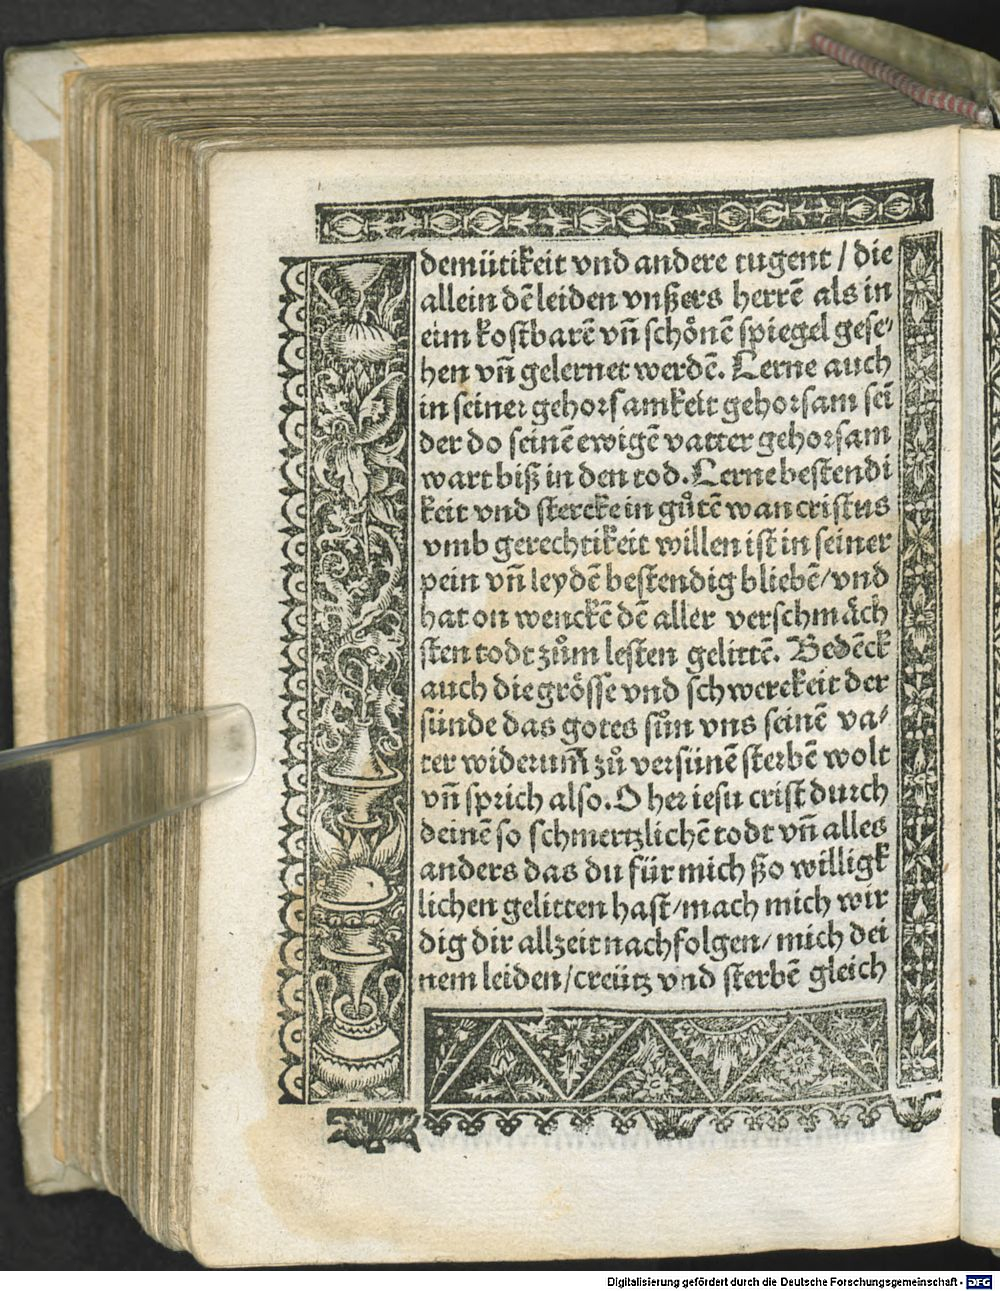 demütikeit vnd andere tugent / die
allein dē leiden vnßers herrē als in
eim kostbarē vñ schoͤnē spiegel gese⸗
hen vñ gelernet werdē. Lerne auch
in seiner gehorsamkeit gehorsam sei
der do seinē ewigē vatter gehorsam
wart biß in den tod. Lerne bestendi
keit vnd stercke in guͦtē wan cristus
vmb gerechtikeit willen ist in seiner
pein vñ leydē bestendig bliebē/vnd
hat on wenckē dē aller verschmaͤch
sten todt zuͦm lesten gelittē. Bedēck
auch die grösse vnd schwerekeit der
sünde das gotes suͦn vns seinē va⸗
ter widerum̄ zuͦ versünē sterbē wolt
vñ sprich also. O her iesu crist durch
deinē so schmertzlichē todt vñ alles
anders das du für mich ßo willigk
lichen gelitten hast/mach mich wir
dig dir allzeit nachfolgen/ mich dei
nem leiden/creütz vnd sterbē gleich
Digitalisierung gefördert durch die Deutsche Forschungsgemeinschaft - DFG